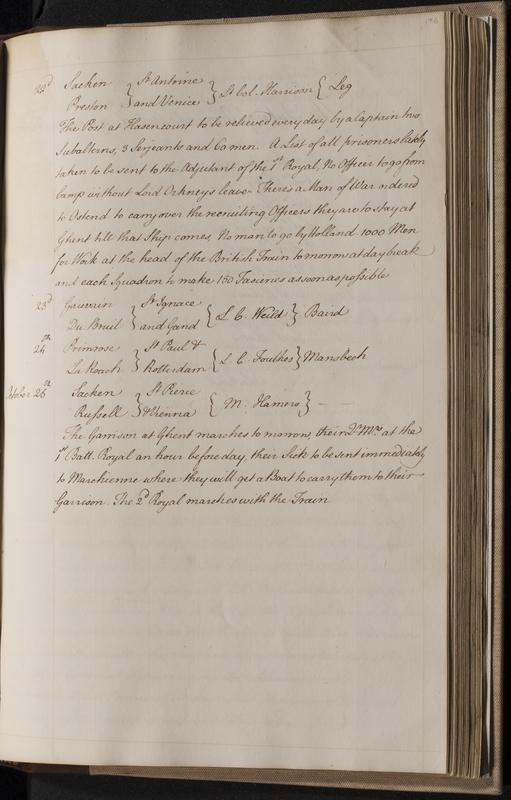 22d Sacken } St Antoine } Lt Col. Harrison { Leg
Preston } and Venice
The Post at Hasencourt to be relieved every day by a Captain two
Subalterns, 3 Serjeants and 60 men. A List of all prisoners lately
taken to be sent to the Adjutant of the 1st Royal, No Officer to go from
Camp without Lord Orkney's leave There's a Man of War ordered
to Ostend to carry over the recruiting Officers they are to stay at
Ghent till that Ship comes, No man to go by Holland 1000 Men
for Work at the head of the British Train to morrow at day break
and each Squadron to make 150 Fascines as soon as possible
23d St Ignace
Du Bruil } and Gand { L. C. Weild } Baird
24th Primrose } St Paul &
La Roach } Rotterdam { L. C. Foulkes } Mansbech
October 26th Sacken } St Pierce
Russell } & Vienna { M. Hamers } — —
The Garrison at Ghent marches to morrow, their Qr Mrs at the
1st Batt. Royal an hour before day, their Sick to be sent immediately
to Marchienne where they will get a Boat to carry them to their
Garrison. The 2d Royal marches with the Train